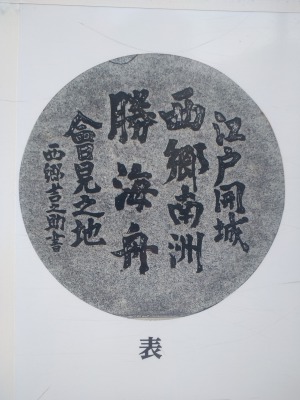 江戸開城
西郷南洲
勝海舟
會見之地
西郷吉之助書
表